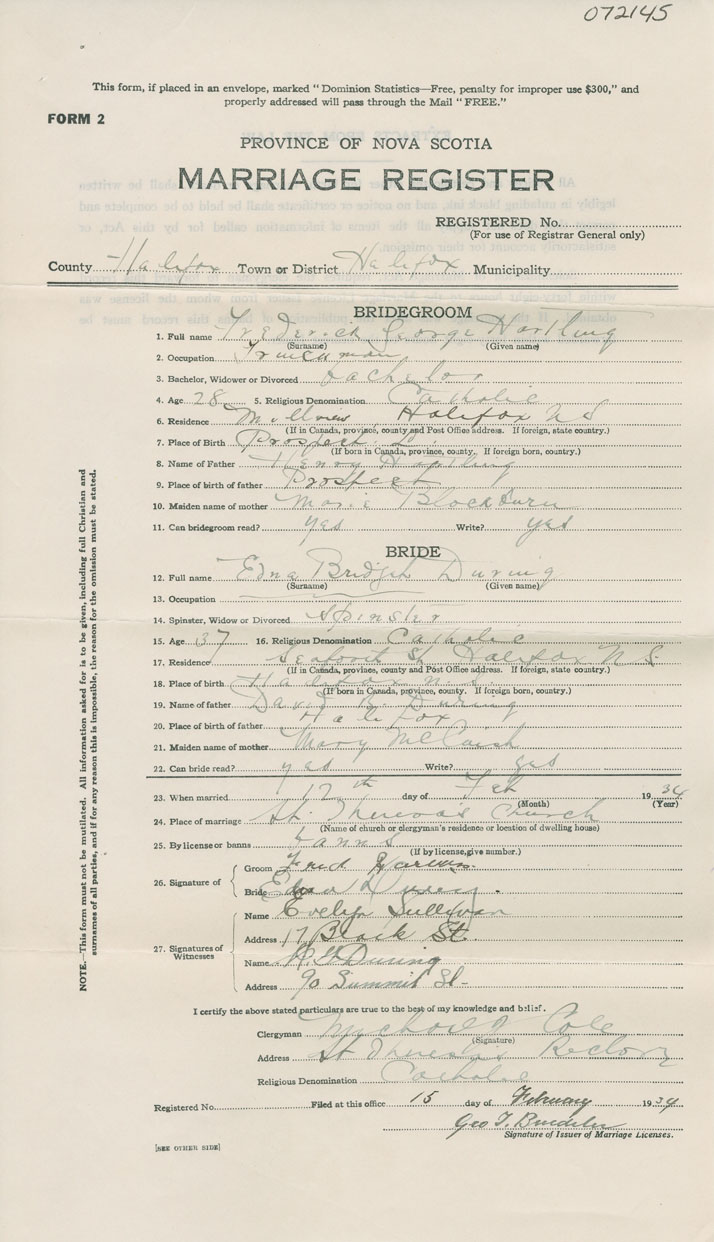 072145
This form, if placed in an envelope, marked "Dominion Statistics—Free, penalty for improper use $300," and
properly addressed will pass through the Mail "FREE."
FORM 2
PROVINCE OF NOVA SCOTIA
MARRIAGE REGISTER
REGISTERED No.
(For use of Registrar General only)
County Halifax Town or District Halifax Municipality
BRIDEGROOM
1. Full name Frederick George Hartling
(Surname) (Given name)
2. Occupation
3. Bachelor, Widower or Divorced Bachelor
4. Age 28 5. Religious Denomination Catholic
6. Residence Millview Halifax N S
(If in Canada, province, county and Post Office address. If foreign, state country.)
7. Place of Birth Prospect
(If born in Canada, province, county. If foreign born, country.)
8. Name of Father Henry Hartling
9. Place of birth of father Prospect
10. Maiden name of mother Marie Blackburn
11. Can bridegroom read? yes Write? yes
BRIDE
12. Full name Edna Bridget During
(Surname) (Given name)
13. Occupation
14. Spinster, Widow or Divorced Spinster
15. Age 37 16. Religious Denomination Catholic
17. Residence St Halifax N S.
(If in Canada, province, county and Post Office address. If foreign, state country.)
18. Place of birth Halifax N. S.
(If born in Canada, province, county. If foreign born, country.)
19. Name of father David B. During
20. Place of birth of father Halifax
21. Maiden name of mother Mary
22. Can bride read? yes Write? yes
23. When married 12th day of Feb 1934
(Month) (Year)
24. Place of marriage St. Theresa's Church
(Name of church or clergyman's residence or location of dwelling house)
25. By license or banns banns
(If by license, give number.)
26. Signature of
Groom Fred
Bride Edna During.
27. Signatures of Witnesses
Name Evelyn Sullivan
Address 17 Black St.
Name During
Address 90 Summit St-
I certify the above stated particulars are true to the best of my knowledge and belief.
Clergyman Cole
(Signature)
Address St Rectory
Religious Denomination Catholic
Registered No. Filed at this office 15 day of February 1934
Geo T.
Signature of Issuer of Marriage Licenses.
[SEE OTHER SIDE]
NOTE.—This form must not be mutilated. All information asked for is to be given, including full Christian and
surnames of all parties, and if for any reason this is impossible, the reason for the omission must be stated.